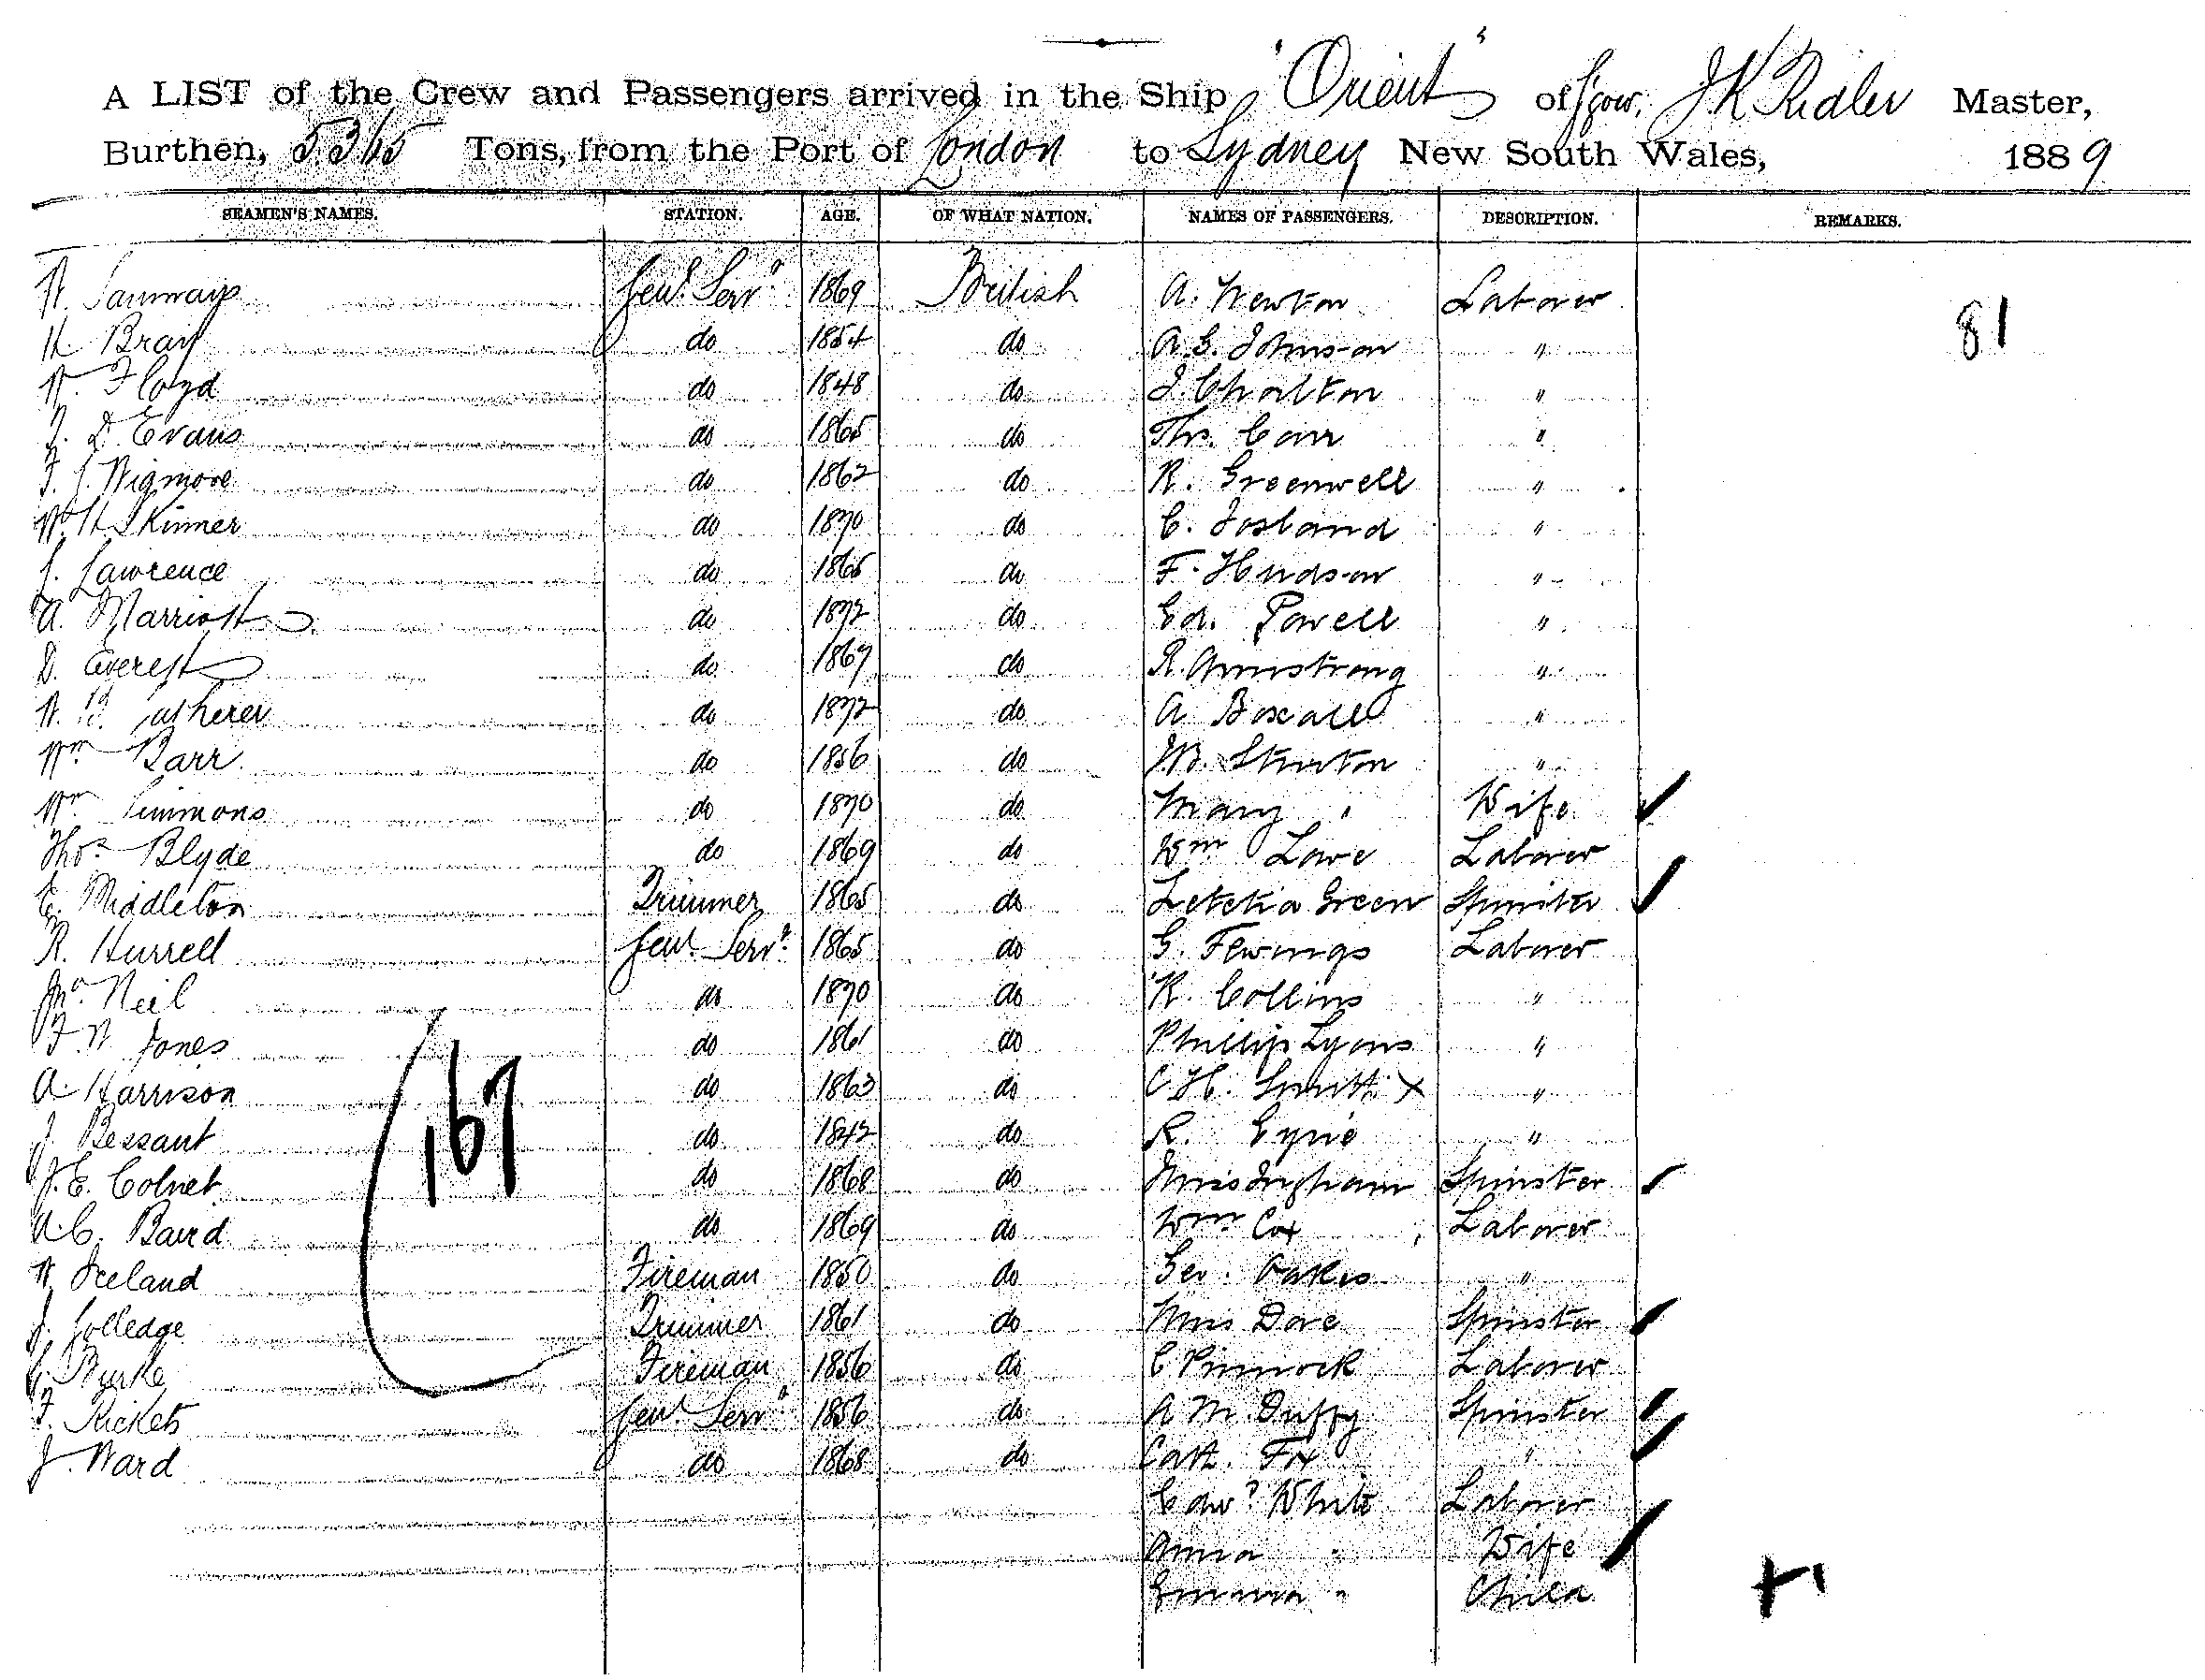 A LIST of the Crew and Passengers arrived in the Ship "Orient" of Gow, J K Ridler Master,
Burthen, 5365 Tons, from the Port of London to Sydney New South Wales, 1889
SEAMEN'S NAMES. STATION. AGE. OF WHAT NATION. NAMES OF PASSENGERS. DESCRIPTION. REMARKS.
W. Samways Genl Servt 1869 British A. Newton Laborer
H Bray do 1854 do A. G. Johnson " 81
W. Floyd do 1848 do J. Charlton "
J. D. Evans do 1865 do Thos. Carr "
F. J. Wigmore do 1862 do R. Greenwell "
W. H Skinner do 1870 do C. Josland "
J. Lawrence do 1865 do F. Hudson "
A. Marriott do 1872 do Ed. Powell "
D. Everest do 1867 do R. Armstrong "
W. do 1872 do A Boxall "
Wm Barr do 1856 do Stretton "
Wm Simmons do 1870 do Mary " Wife
Thos Blyde do 1869 do Wm Lowe Laborer
E. Middleton Trimmer 1865 do Letetia Green Spinster
R. Hurrell Genl Servt 1865 do G. Fewings Laborer
Jno Neil do 1870 do R. Collins "
F. W Jones do 1861 do Phillip Lyons "
A. Harrison do 1863 do C H. Smith X "
J. Bessant do 1842 do R. Eyrie "
167
J. E. Colnet do 1868 do Miss Ingham Spinster
A. C. Baird do 1869 do Wm Cox Laborer
W. Iceland Fireman 1850 do Geo. Oakes "
J. Golledge Trimmer 1861 do Miss Dove Spinster
Burke Fireman 1856 do C Pinnock Laborer
F. Rickets Genl Servt 1856 do A M. Duffy Spinster
J. Ward do 1868 do Cath. Fox "
Edwd White Laborer
Anna " Wife
Emma " Child